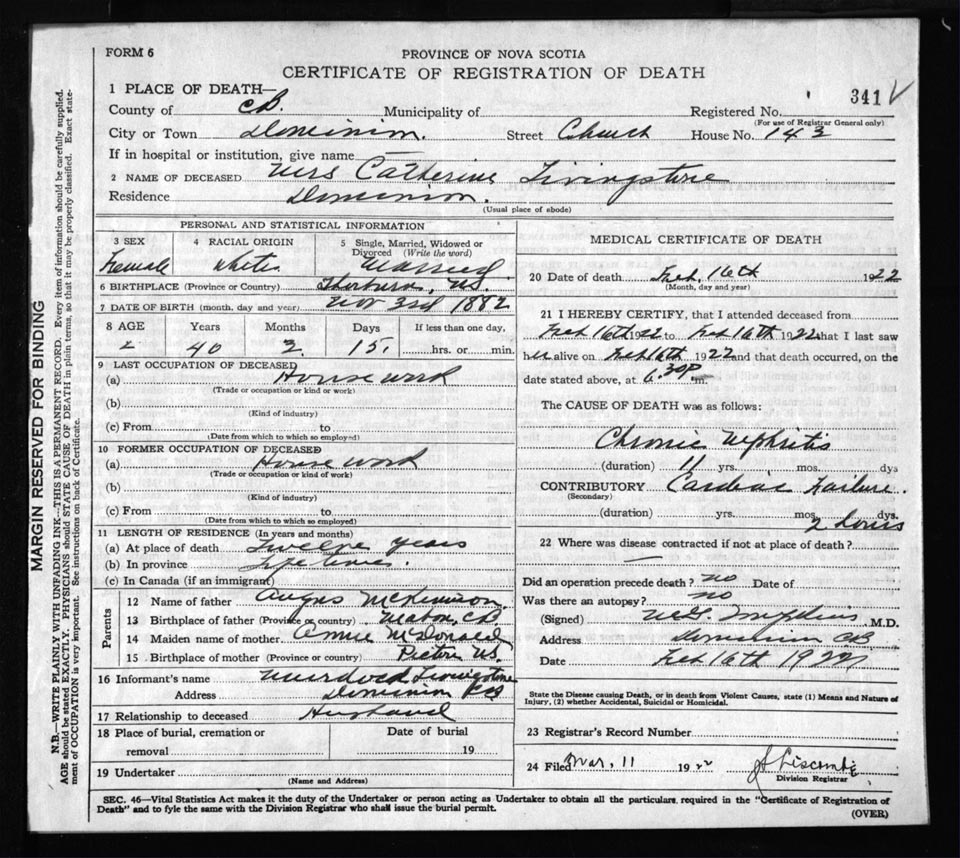 FORM 6
PROVINCE OF NOVA SCOTIA
CERTIFICATE OF REGISTRATION OF DEATH
1 PLACE OF DEATH—
341 ✓
County of CB. Municipality of Registered No.
(For use of Registrar General only)
City or Town Dominion. Street Church House No. 143
If in hospital or institution, give name —
2 NAME OF DECEASED Mrs Catherine Livingstone
Residence Dominion.
(Usual place of abode)
PERSONAL AND STATISTICAL INFORMATION
3 SEX 4 RACIAL ORIGIN 5 Single, Married, Widowed or Divorced (Write the word)
Female White. Married.
6 BIRTHPLACE (Province or Country) Thorburn, NS.
7 DATE OF BIRTH (month, day and year) Nov 3rd 1882
8 AGE Years Months Days If less than one day,
40 3. 15. hrs. or min.
9 LAST OCCUPATION OF DECEASED
(a) House work
(Trade or occupation or kind of work)
(b)
(Kind of industry)
(c) From to
(Date from which to which so employed)
10 FORMER OCCUPATION OF DECEASED
(a) House work
(Trade or occupation or kind of work)
(b)
(Kind of industry)
(c) From to
(Date from which to which so employed)
11 LENGTH OF RESIDENCE (In years and months)
(a) At place of death Twelve years
(b) In province Life time.
(c) In Canada (if an immigrant)
Parents
12 Name of father Angus McKinnon.
13 Birthplace of father (Province or country) Mabou, CB
14 Maiden name of mother Annie McDonald
15 Birthplace of mother (Province or country) Pictou NS.
16 Informant's name Murdoch Livingstone
Address Dominion CB
17 Relationship to deceased Husband
18 Place of burial, cremation or removal Date of burial
19
19 Undertaker
(Name and Address)
MEDICAL CERTIFICATE OF DEATH
20 Date of death Feb. 16th 1922
(Month, day and year)
21 I HEREBY CERTIFY, that I attended deceased from
Feb 16th 1922 to Feb 16th 1922 that I last saw
her alive on Feb 16th 1922 and that death occurred, on the
date stated above, at 6.30P m.
The CAUSE OF DEATH was as follows:
Chronic Nephritis
(duration) 11 yrs. mos. dys
CONTRIBUTORY Cardiac Failure.
(Secondary)
(duration) yrs. mos. dys.
2 hours
22 Where was disease contracted if not at place of death?
—
Did an operation precede death? no Date of
Was there an autopsy? no
(Signed) M.D.
Address Dominion CB
Date Feb 16th 1922
State the Disease causing Death, or in death from Violent Causes, state (1) Means and Nature of
Injury, (2) whether Accidental, Suicidal or Homicidal.
23 Registrar's Record Number
24 Filed Mar, 11 1922 Liscombe
Division Registrar
SEC. 46—Vital Statistics Act makes it the duty of the Undertaker or person acting as Undertaker to obtain all the particulars required in the "Certificate of Registration of
Death" and to fyle the same with the Division Registrar who shall issue the burial permit.
(OVER)
MARGIN RESERVED FOR BINDING
N.B.—WRITE PLAINLY WITH UNFADING INK—THIS IS A PERMANENT RECORD. Every item of information should be carefully supplied.
AGE should be stated EXACTLY. PHYSICIANS should STATE CAUSE OF DEATH in plain terms, so that it may be properly classified. Exact state-
ment of OCCUPATION is very important. See instructions on back of Certificate.